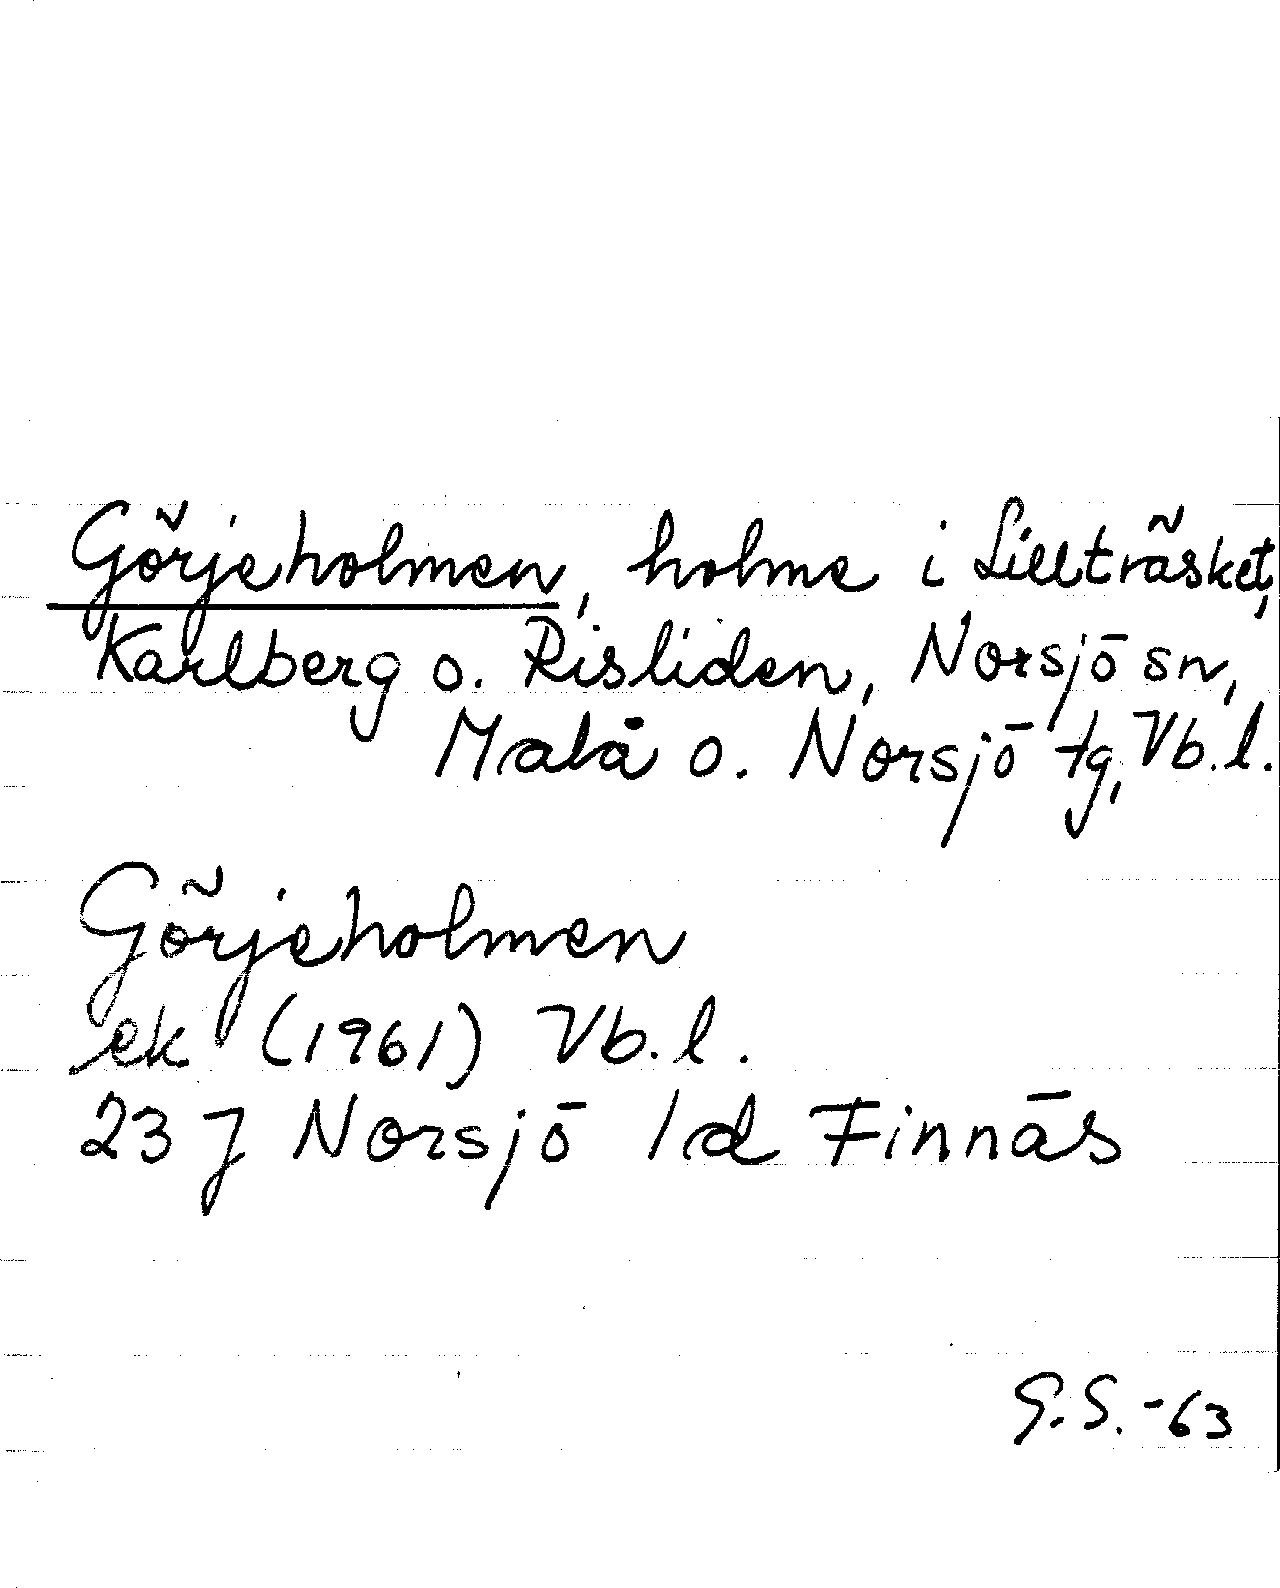 Görjeholmen, holme i Lillträsket,
Karlberg o. Risliden, Norsjö sn,
Malå o. Norsjö tg, Vb.l.
Görjeholmen
ek (1961) Vb.l.
23 J Norsjö 1d Finnäs
G.S.-63